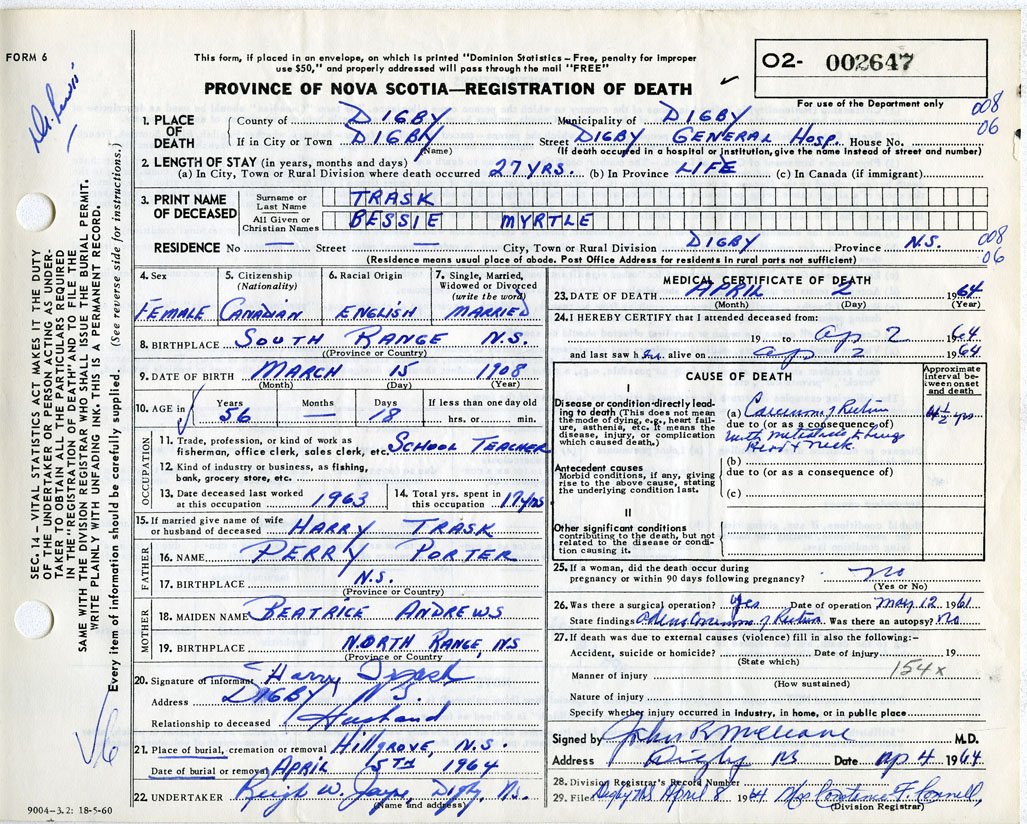 FORM 6
This form, if placed in an envelope, on which is printed "Dominion Statistics – Free, penalty for improper
use $50," and properly addressed will pass through the mail "FREE"
PROVINCE OF NOVA SCOTIA—REGISTRATION OF DEATH
O2- 002647
For use of the Department only
008
06
1. PLACE OF DEATH
County of DIGBY Municipality of DIGBY
If in City or Town DIGBY Street DIGBY GENERAL HOSP. House No.
(Name) (If death occurred in a hospital or institution, give the name instead of street and number)
2. LENGTH OF STAY (in years, months and days)
(a) In City, Town or Rural Division where death occurred 27 YRS. (b) In Province LIFE (c) In Canada (if immigrant)
3. PRINT NAME OF DECEASED
Surname or Last Name TRASK
All Given or Christian Names BESSIE MYRTLE
RESIDENCE No — Street — City, Town or Rural Division DIGBY Province N.S.
(Residence means usual place of abode. Post Office Address for residents in rural parts not sufficient)
008
06
4. Sex FEMALE
5. Citizenship (Nationality) CANADIAN
6. Racial Origin ENGLISH
7. Single, Married, Widowed or Divorced (write the word) MARRIED
8. BIRTHPLACE SOUTH RANGE N.S.
(Province or Country)
9. DATE OF BIRTH MARCH 15 1908
(Month) (Day) (Year)
10. AGE in Years 56 Months — Days 18 If less than one day old hrs. or min.
OCCUPATION
11. Trade, profession, or kind of work as
fisherman, office clerk, sales clerk, etc. SCHOOL TEACHER
12. Kind of industry or business, as fishing,
bank, grocery store, etc.
13. Date deceased last worked at this occupation 1963
14. Total yrs. spent in this occupation 17 yrs
15. If married give name of wife or husband of deceased HARRY TRASK
FATHER
16. NAME PERRY PORTER
17. BIRTHPLACE N.S.
(Province or Country)
MOTHER
18. MAIDEN NAME BEATRICE ANDREWS
19. BIRTHPLACE NORTH RANGE, NS
(Province or Country
20. Signature of informant Harry Trask
Address DIGBY N.S.
Relationship to deceased Husband
21. Place of burial, cremation or removal HILLGROVE, N.S.
Date of burial or removal APRIL 5TH 1964
22. UNDERTAKER W. Jayne, Digby, N.S.
(Name and address)
9004–3.2: 18-5-60
MEDICAL CERTIFICATE OF DEATH
23. DATE OF DEATH APRIL 2 1964
(Month) (Day) (Year)
24. I HEREBY CERTIFY that I attended deceased from:
19 to ap 2 1964
and last saw her alive on ap 2 1964
CAUSE OF DEATH
Approximate interval between onset and death
I
Disease or condition directly leading to death (This does not mean the mode of dying, e.g., heart failure, asthenia, etc. It means the disease, injury, or complication which caused death.)
(a) Carcinoma of Rectum 4½ yrs
due to (or as a consequence of)
with metastasis to lungs
Head & neck
(b)
due to (or as a consequence of)
(c)
Antecedent causes
Morbid conditions, if any, giving rise to the above cause, stating the underlying condition last.
II
Other significant conditions
contributing to the death, but not related to the disease or condition causing it.
25. If a woman, did the death occur during
pregnancy or within 90 days following pregnancy? no
(Yes or No)
26. Was there a surgical operation? yes Date of operation May 12 1961
State findings Adenocarcinoma of Rectum Was there an autopsy? No
27. If death was due to external causes (violence) fill in also the following:–
Accident, suicide or homicide? Date of injury 19
(State which)
154x
Manner of injury
(How sustained)
Nature of injury
Specify whether injury occurred in industry, in home, or in public place
Signed by John R McCleave M.D.
Address Digby NS ap 4 1964
28. Division Registrar's Record Number
29. Filed Digby NS April 8 1964 Mrs Constance F. Connell,
(Division Registrar)
SEC. 14 – VITAL STATISTICS ACT MAKES IT THE DUTY
OF THE UNDERTAKER OR PERSON ACTING AS UNDER-
TAKER TO OBTAIN ALL THE PARTICULARS REQUIRED
IN THE "REGISTRATION OF DEATH" AND TO FILE THE
SAME WITH THE DIVISION REGISTRAR WHO SHALL ISSUE THE BURIAL PERMIT.
WRITE PLAINLY WITH UNFADING INK. THIS IS A PERMANENT RECORD.
Every item of information should be carefully supplied. (See reverse side for instructions.)
6